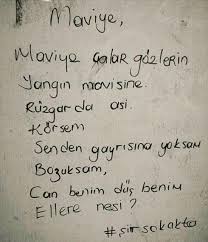 Maviye,
Maviye çalar gözlerin
Yangın mavisine.
Rüzgarda asi.
Körsem
Senden gayrısına yoksam
Bozuksam,
Can benim düş benim
Ellere nesi?
#şiirsokakta